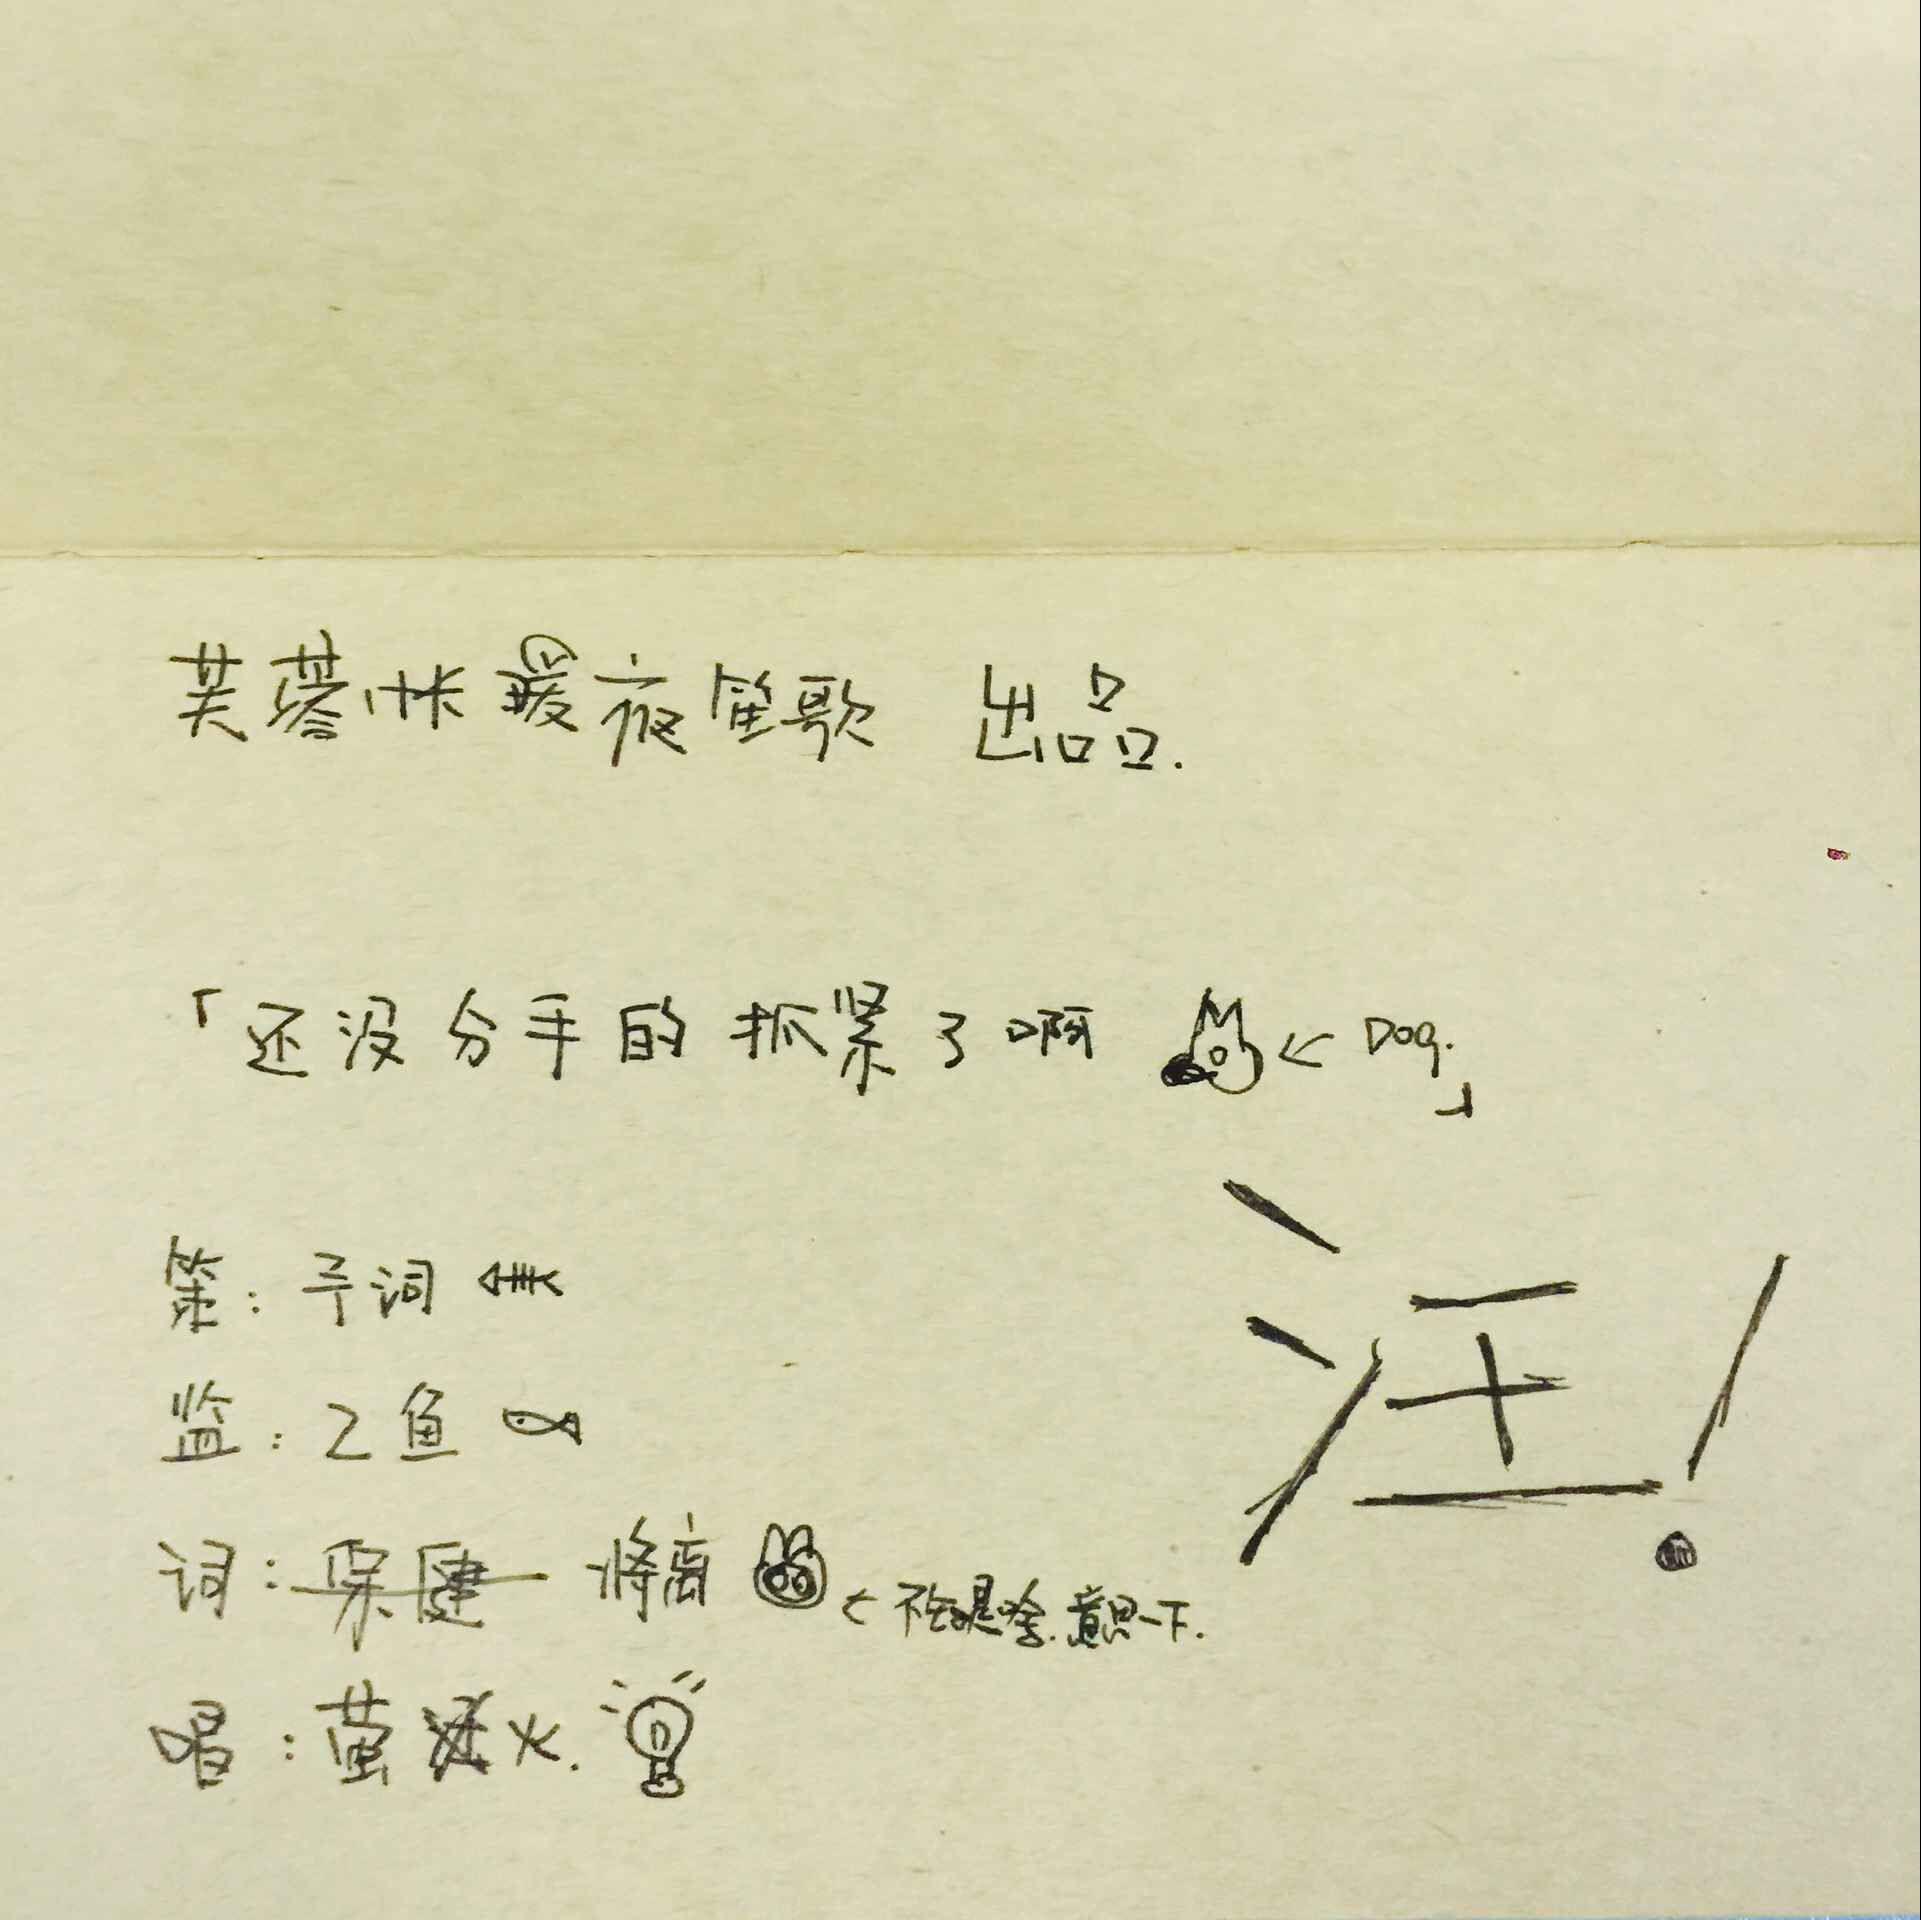 芙蓉帐暖夜笙歌 出品.
「还没分手的抓紧了啊 ← Dog.」
汪!
策:予词
监:乙鱼
词:保健 将离 ← 不知是啥.意思一下.
唱:萤火.